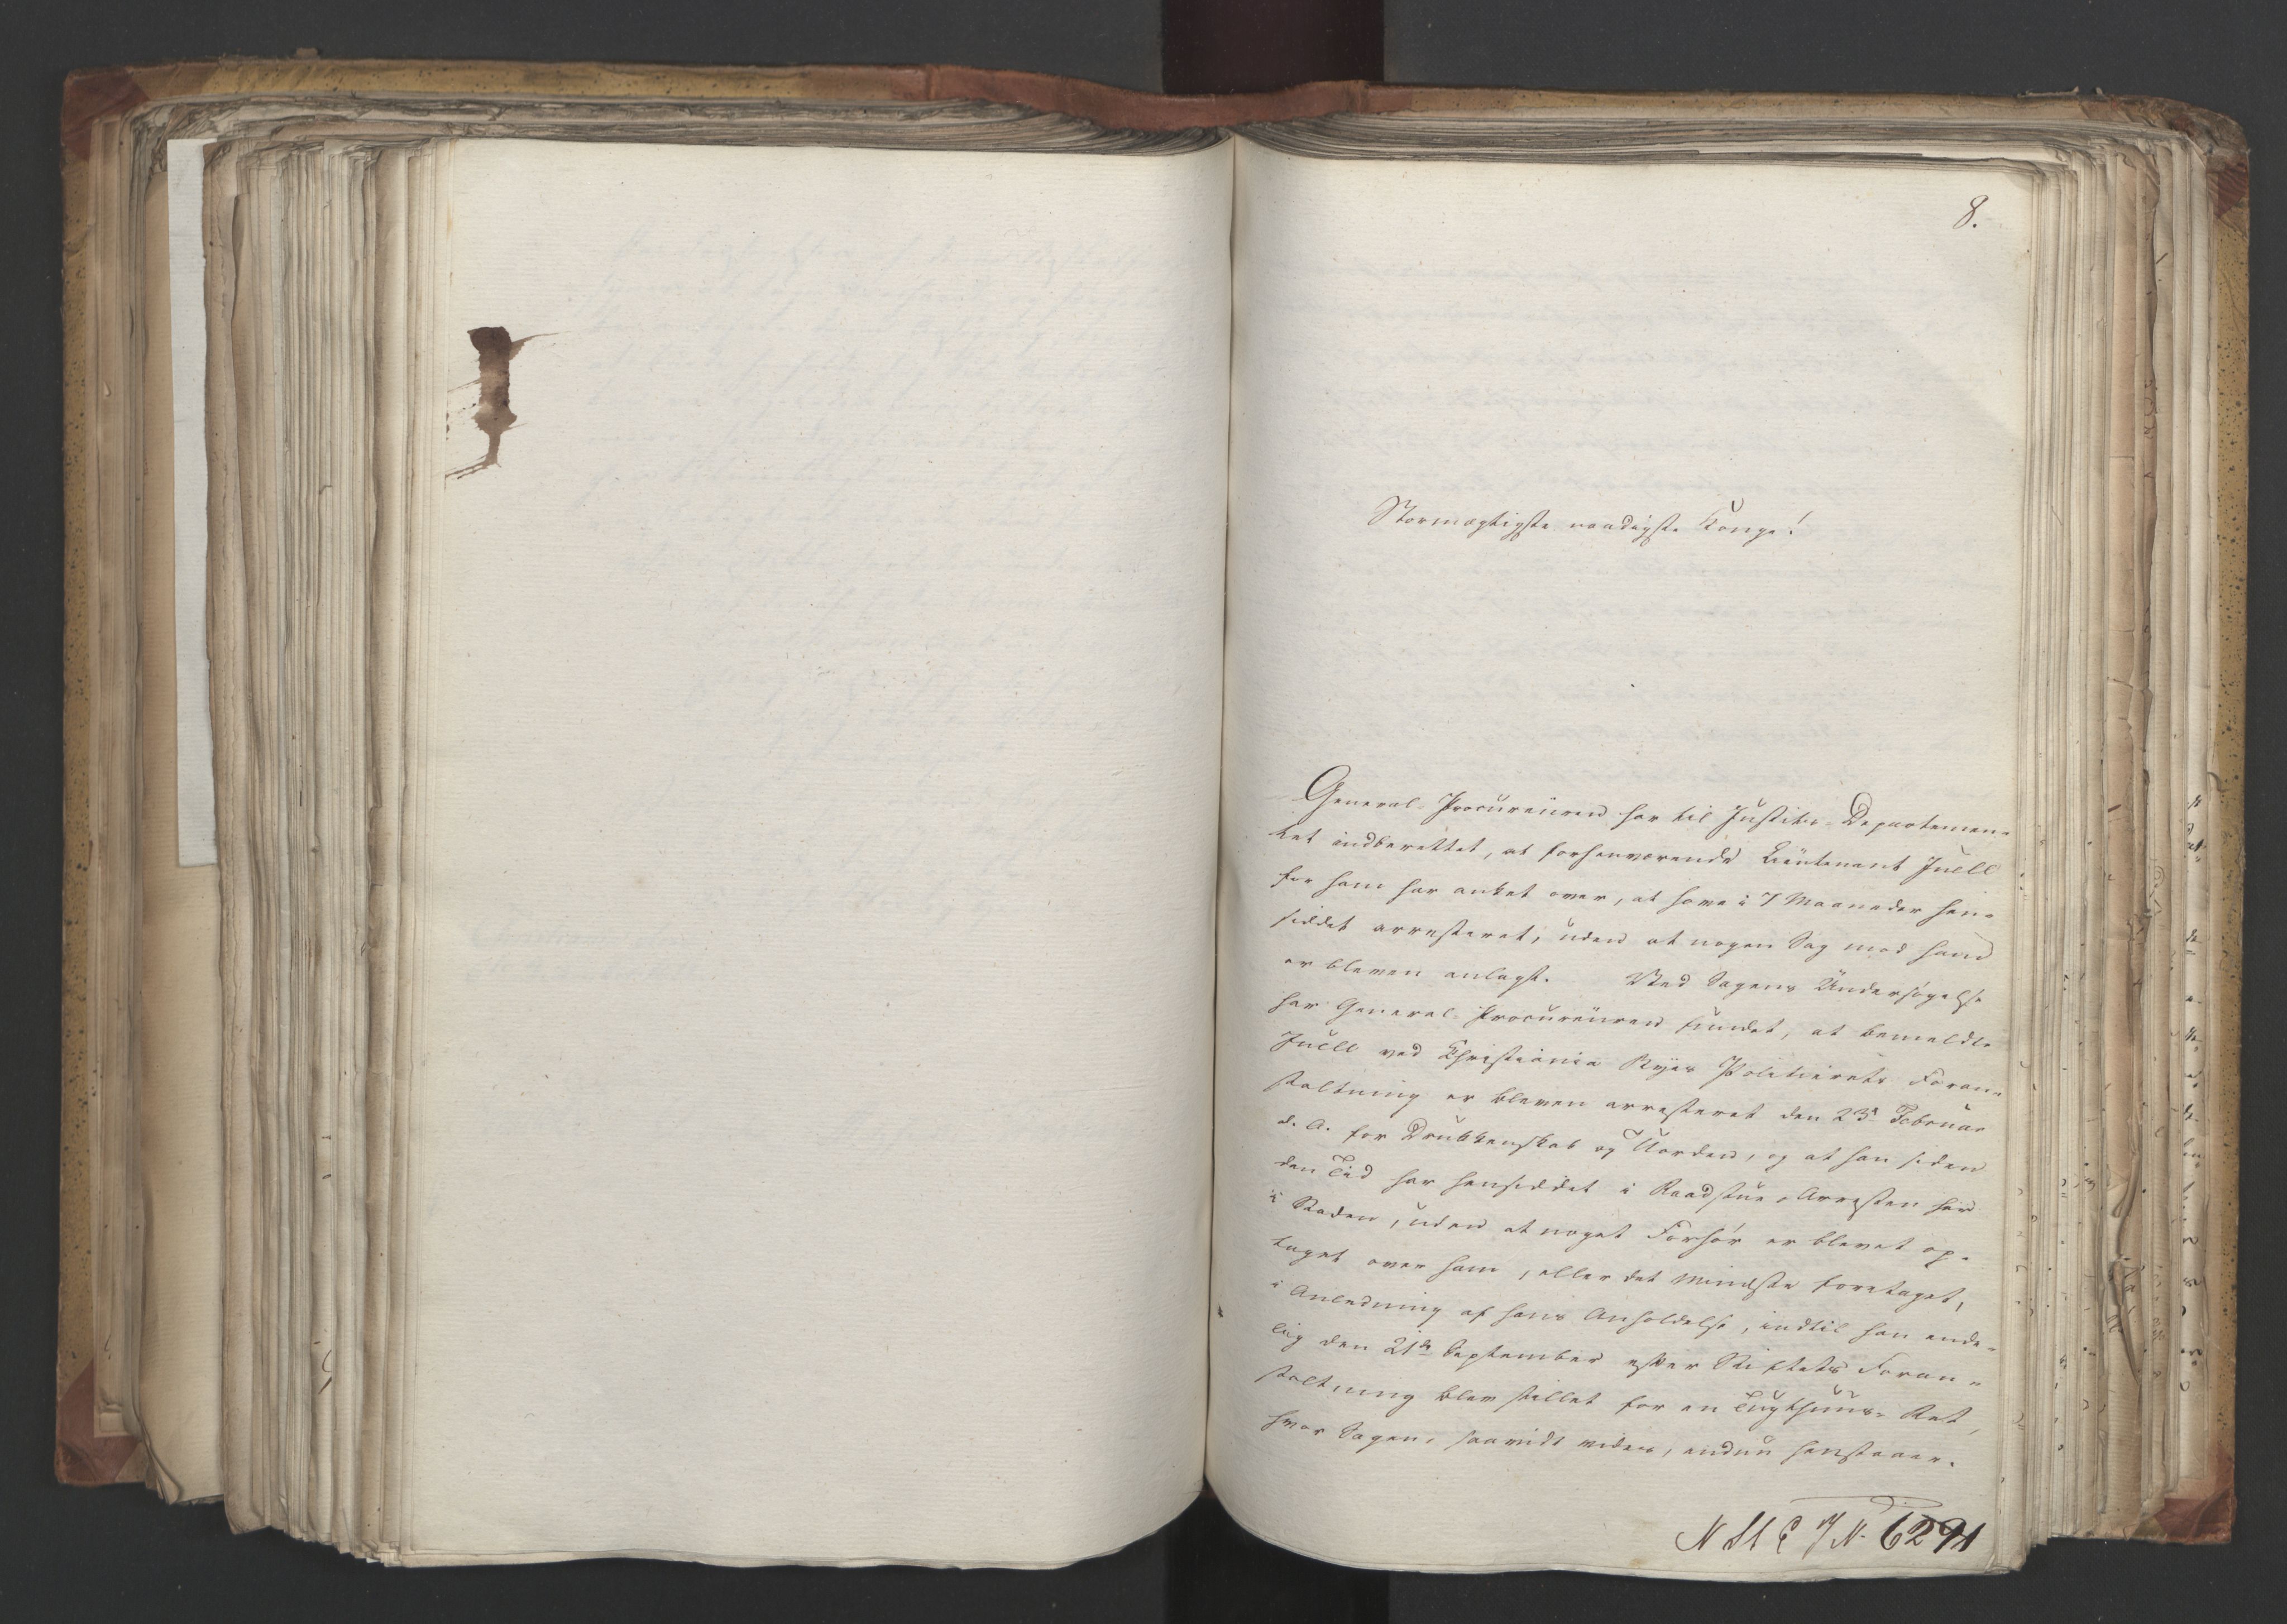 8.
Stormægtigste naadigste Konge!
General-Procureuren har til Justits-Departemen-
tet indberettet, at forhenværende Lieutenant Juell
for ham har anket over, at have i 7 Maaneder hen-
siddet arresteret, uden at nogen Sag mod ham
er bleven anlagt. Ved Sagens Undersøgelse
har General-Procureuren fundet, at bemeldte
Juell ved Christiania Byes Politierets Foran-
staltning er bleven arresteret den 23de Februar
d. A. for Drukkenskab og Uorden, og at han siden
den Tid har hensiddet i Raadstue-Arresten her
i Staden, uden at noget Forhør er blevet op-
taget over ham, eller det mindste foretaget,
i Anledning af hans Anholdelse, indtil han ende-
lig den 21de September efter Stiftets Foran-
staltning blev stillet for en Tugthuus-Ret,
hvor Sagen, saavidt vides, endnu henstaaer.
6291